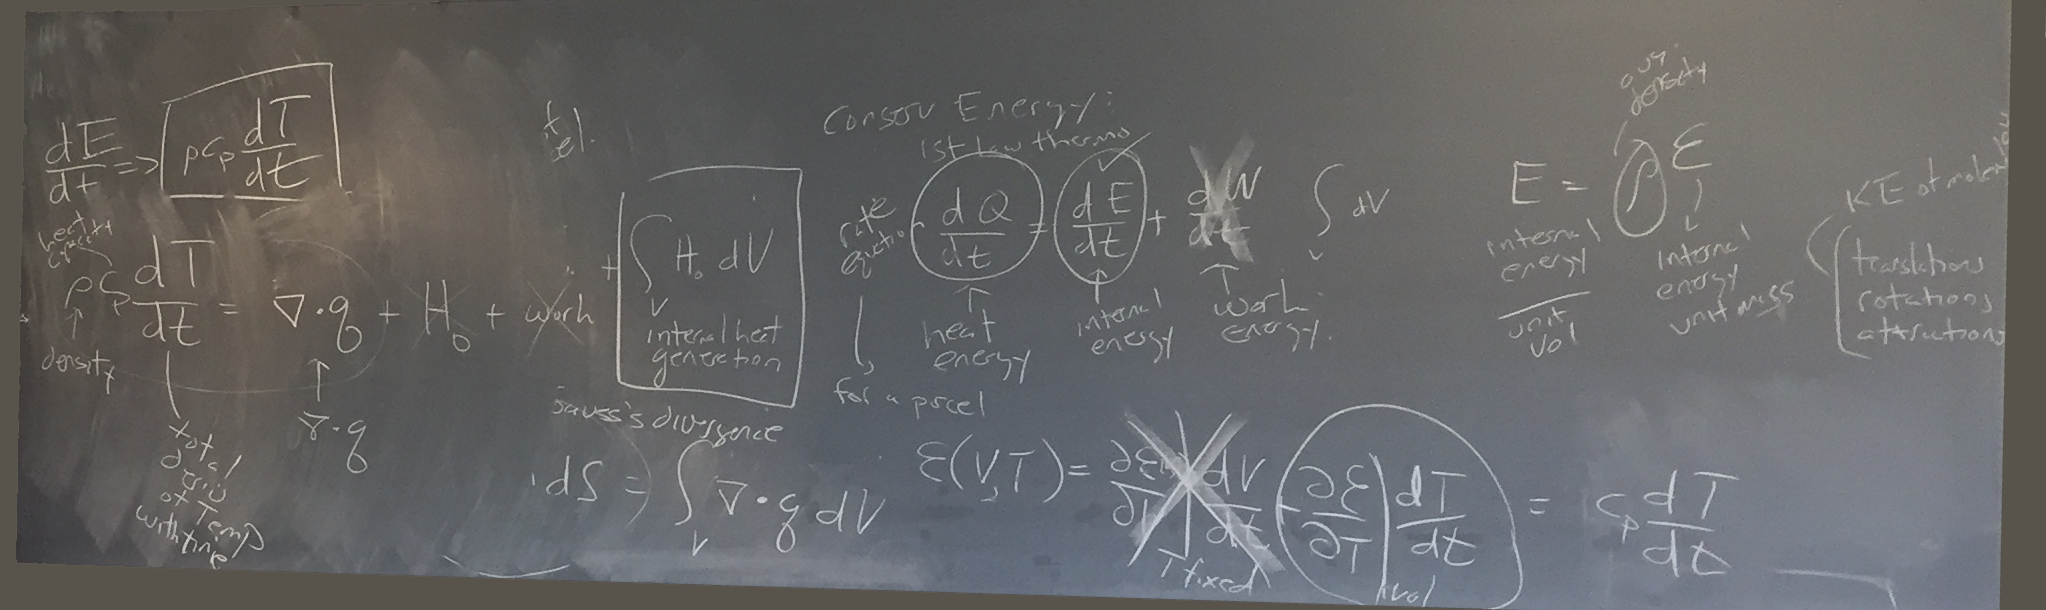 dE/dt => ρc_p dT/dt
heat capacity
ρc_p dT/dt = ∇·q + H_o + work
density
∇·q
total deriv of Temp with time
+ ∫_V H_o dV
internal heat generation
Gauss's divergence
·dS = ∫_V ∇·q dV
Conserv Energy:
1st Law thermo
rate equation
dQ/dt = dE/dt + dW/dt ∫_V dV
heat energy
internal energy
work energy.
for a parcel
ε(V,T) = ∂ε/∂V dV/dt + ∂ε/∂T| dT/dt = c_p dT/dt
T fixed
vol
our density
E = ρ ε
internal energy
unit vol
internal energy
unit mass
KE of molecules
translations
rotations
attractions